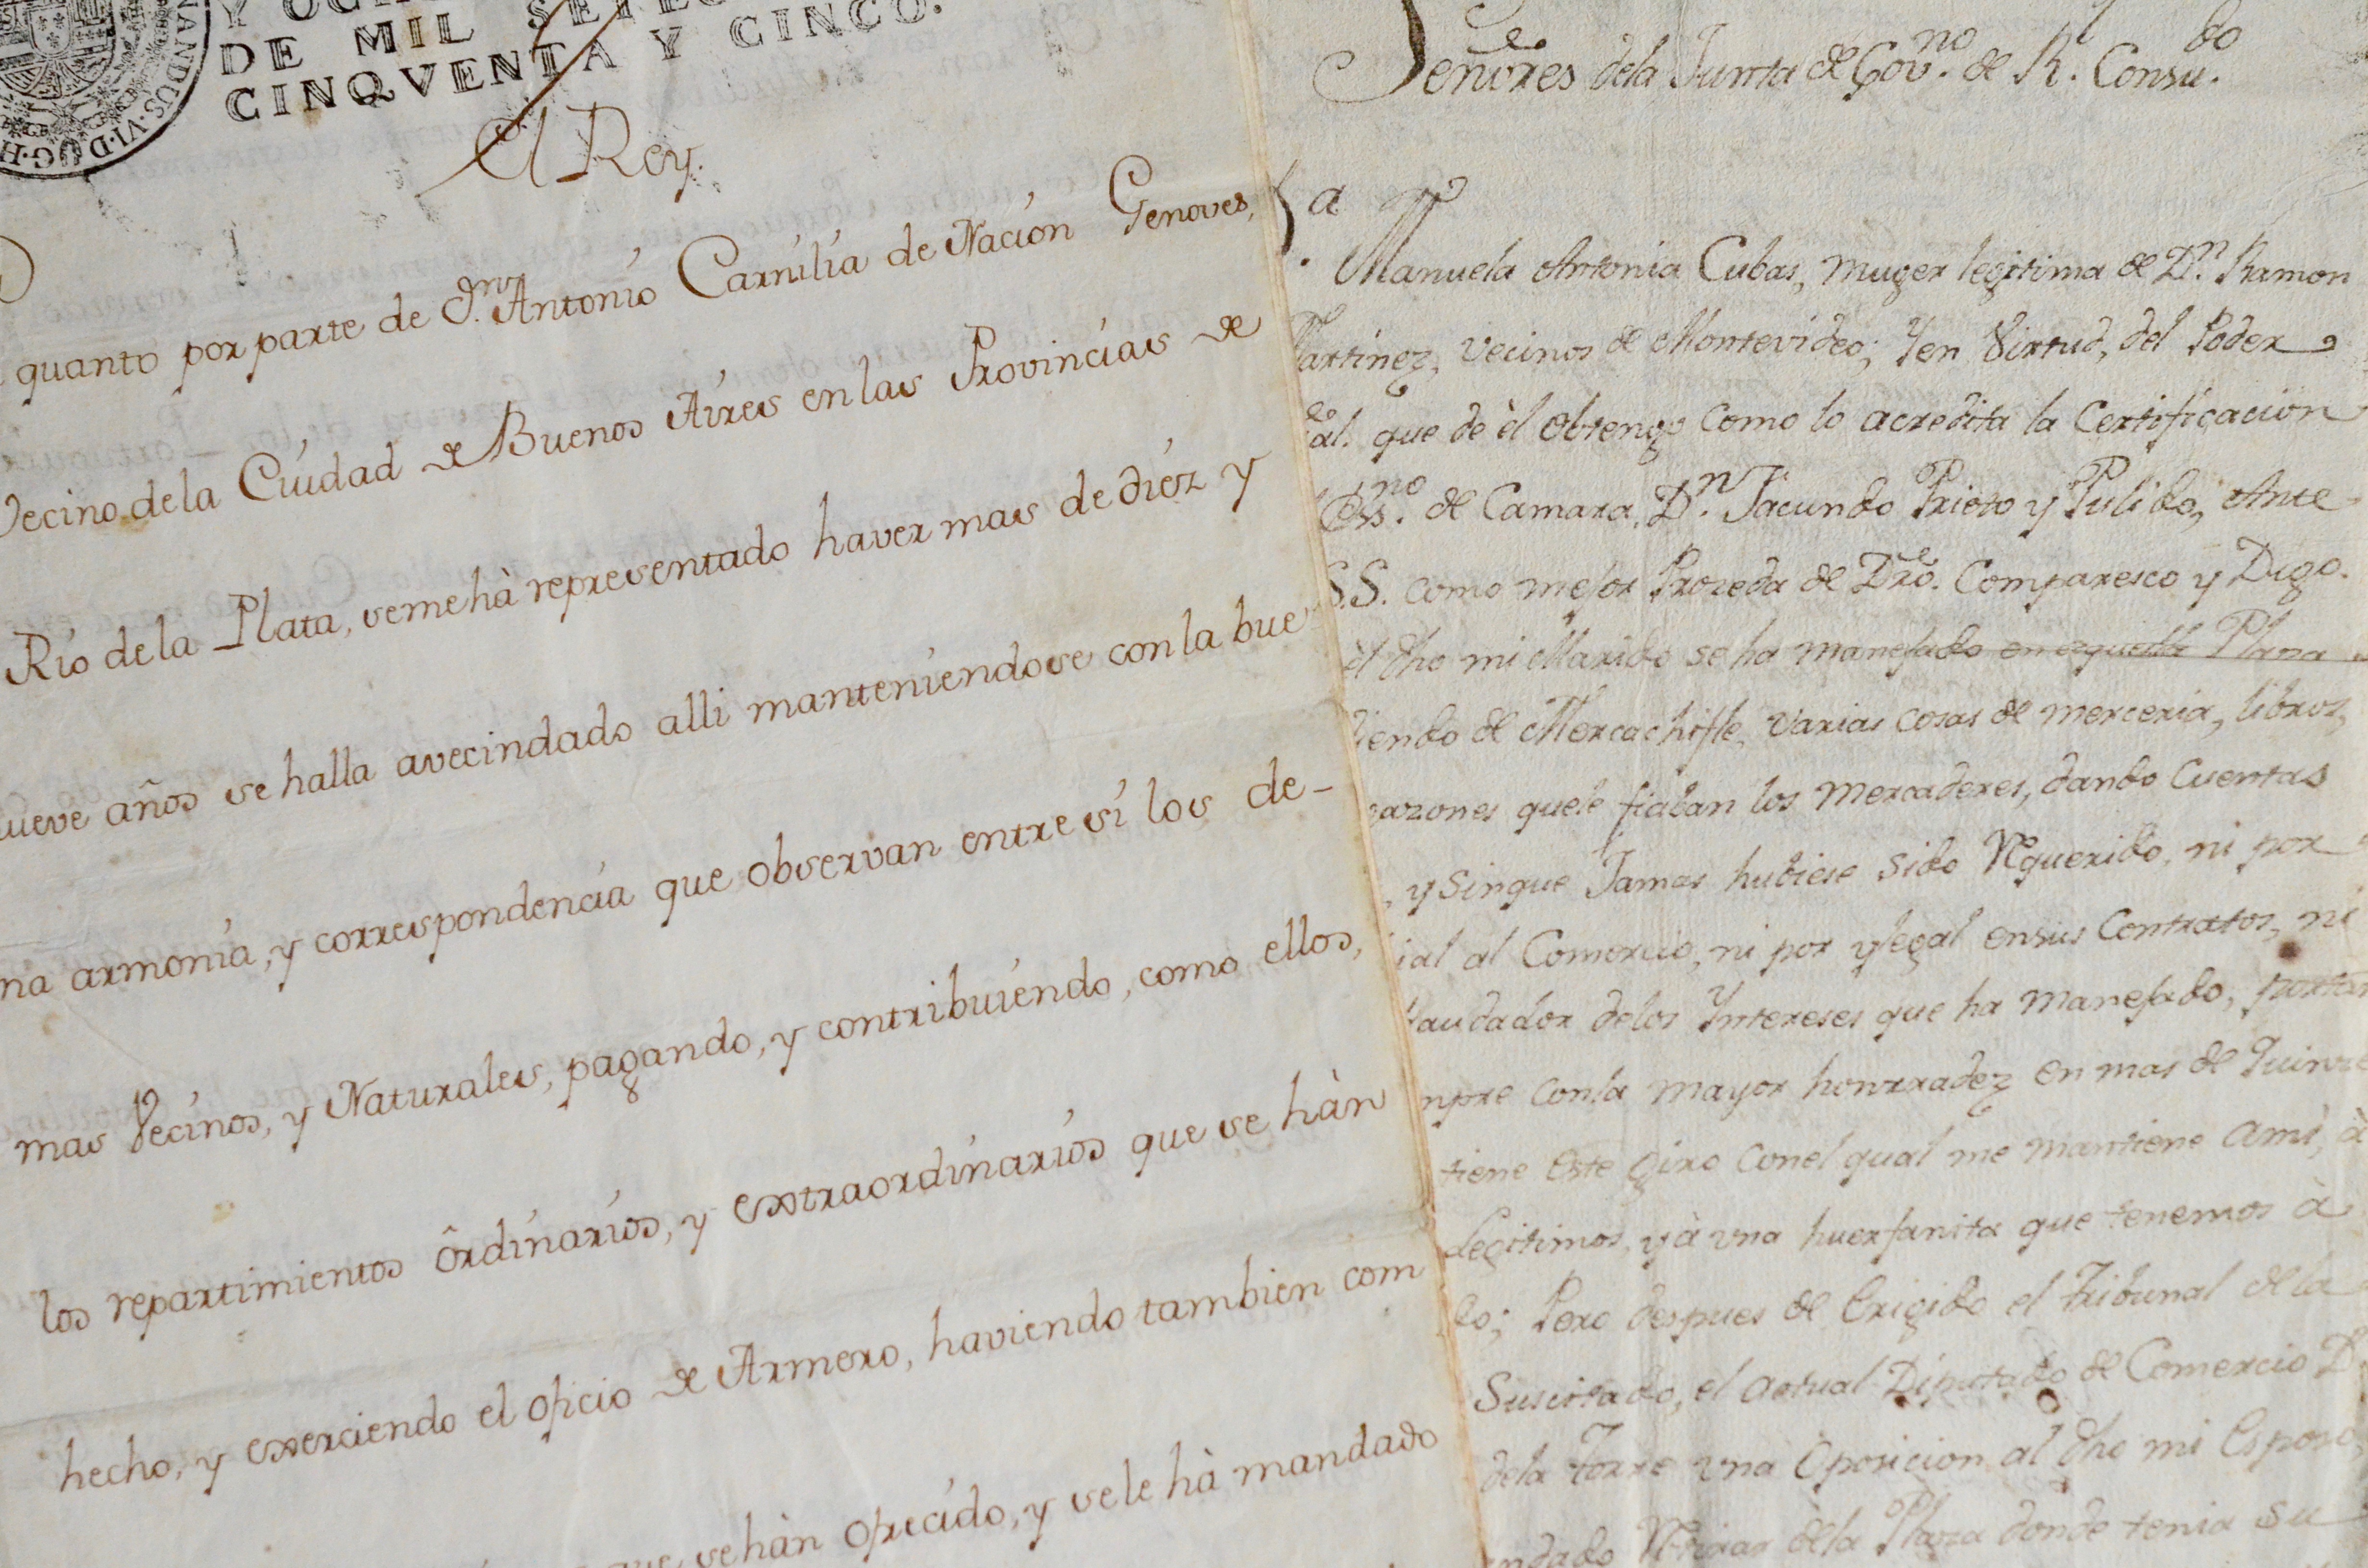 NANDUS·VI·D·G·H
DE MIL SETEC
CINQVENTA Y CINCO.
El Rey.
quanto por parte de Dn. Antonio Carnilia de Nacion Genoves,
Vecino de la Ciudad de Buenos Aires en las Provincias de
Rio de la Plata, se me hà representado haver mas de diez y
nueve años se halla avecindado alli manteniendose con la bue
na armonia, y correspondencia que observan entre sí los de-
mas Vecinos, y Naturales, pagando, y contribuiendo, como ellos,
los repartimientos ôrdinarios, y extraordinarios que se hàn
hecho, y exerciendo el oficio de Armero, haviendo tambien com
que se hàn ofrecido, y se le hà mandado
Señores dela Junta de Govno. de Rl. Consudo.
a
Manuela Antonia Cubas, muger legitima de Dn. Ramon
Martinez, vecinos de Montevideo; Yen Virtud, del Poder
que de èl obtengo como lo acredita la Certificacion
Essno. de Camara, Dn. Jacundo Prieto y Pulido, Ante
S.S. como mejor Proceda de Dro. Comparesco y Digo.
èl dho mi Marido se ha manejado en aquella Plaza
diendo de Mercachifle, varias cosas de merceria, libros,
razones quele fiaban los Mercaderes, dando Cuentas
, y Sinque Jamas hubiese Sido Requerido, ni por
ial al Comercio, ni por ylegal ensus Contratos, ni
faudador delos Yntereses que ha Manejado, portan
mpre conla mayor honrradez en mas de Quinze
tiene Este Giro conel qual me mantiene ami, à
Legitimos, y à una huerfanita que tenemos à
do; Pero despues de Erigido el Tribunal de la
Suscitado, el actual Diputado de Comercio D
dela Torre una Oposicion al dho mi Esposo,
ndado Retirar dela Plaza donde tenia su